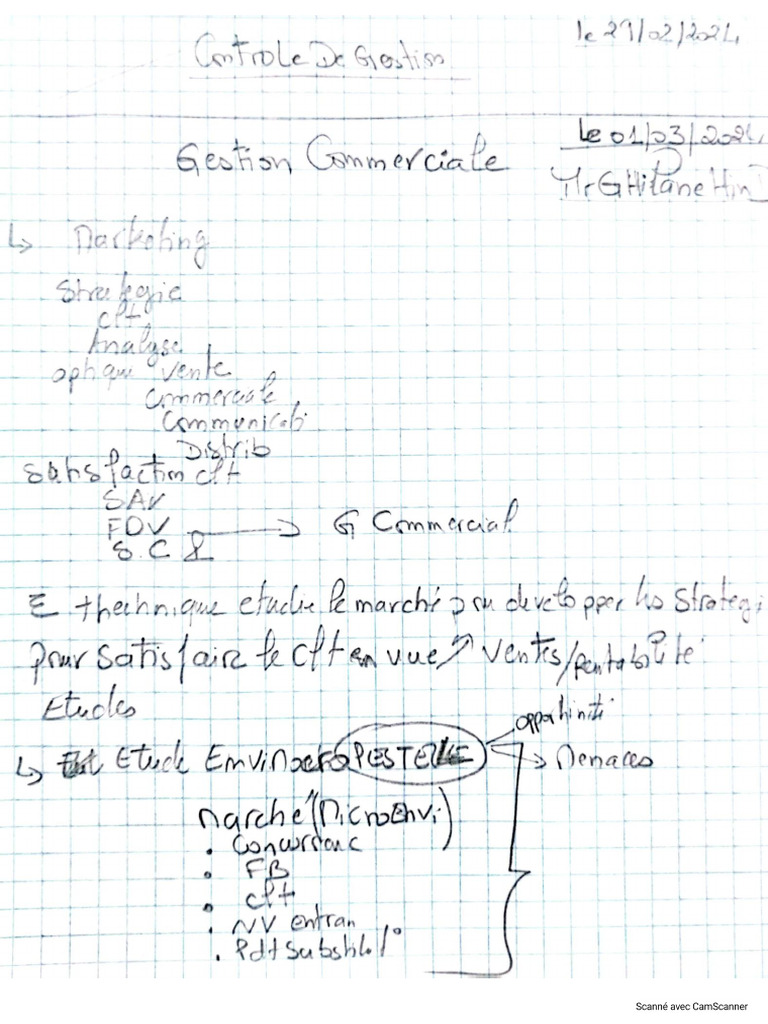 le 29/02/2024
Controle De Gestion
Le 01/03/2024
Gestion Commerciale
Mr GHilane Hin
↳ Marketing
Strategie
clt
Analyse
optique vente
Commerciale
Communicati
Distrib
Satisfaction clt
SAV
FDV → G Commercial
S.C
Σ thechnique etudie le marché pou developper les Strategi
pour satisfaire le clt en vue ↗ ventes/rentabilité
Etudes
opportunité
↳ Etude PESTEL → Menaces
Marché (MicroEnvi)
• Concurrenc
• FB
• clt
• NV entran
• Pdt Substitut°
Scanné avec CamScanner